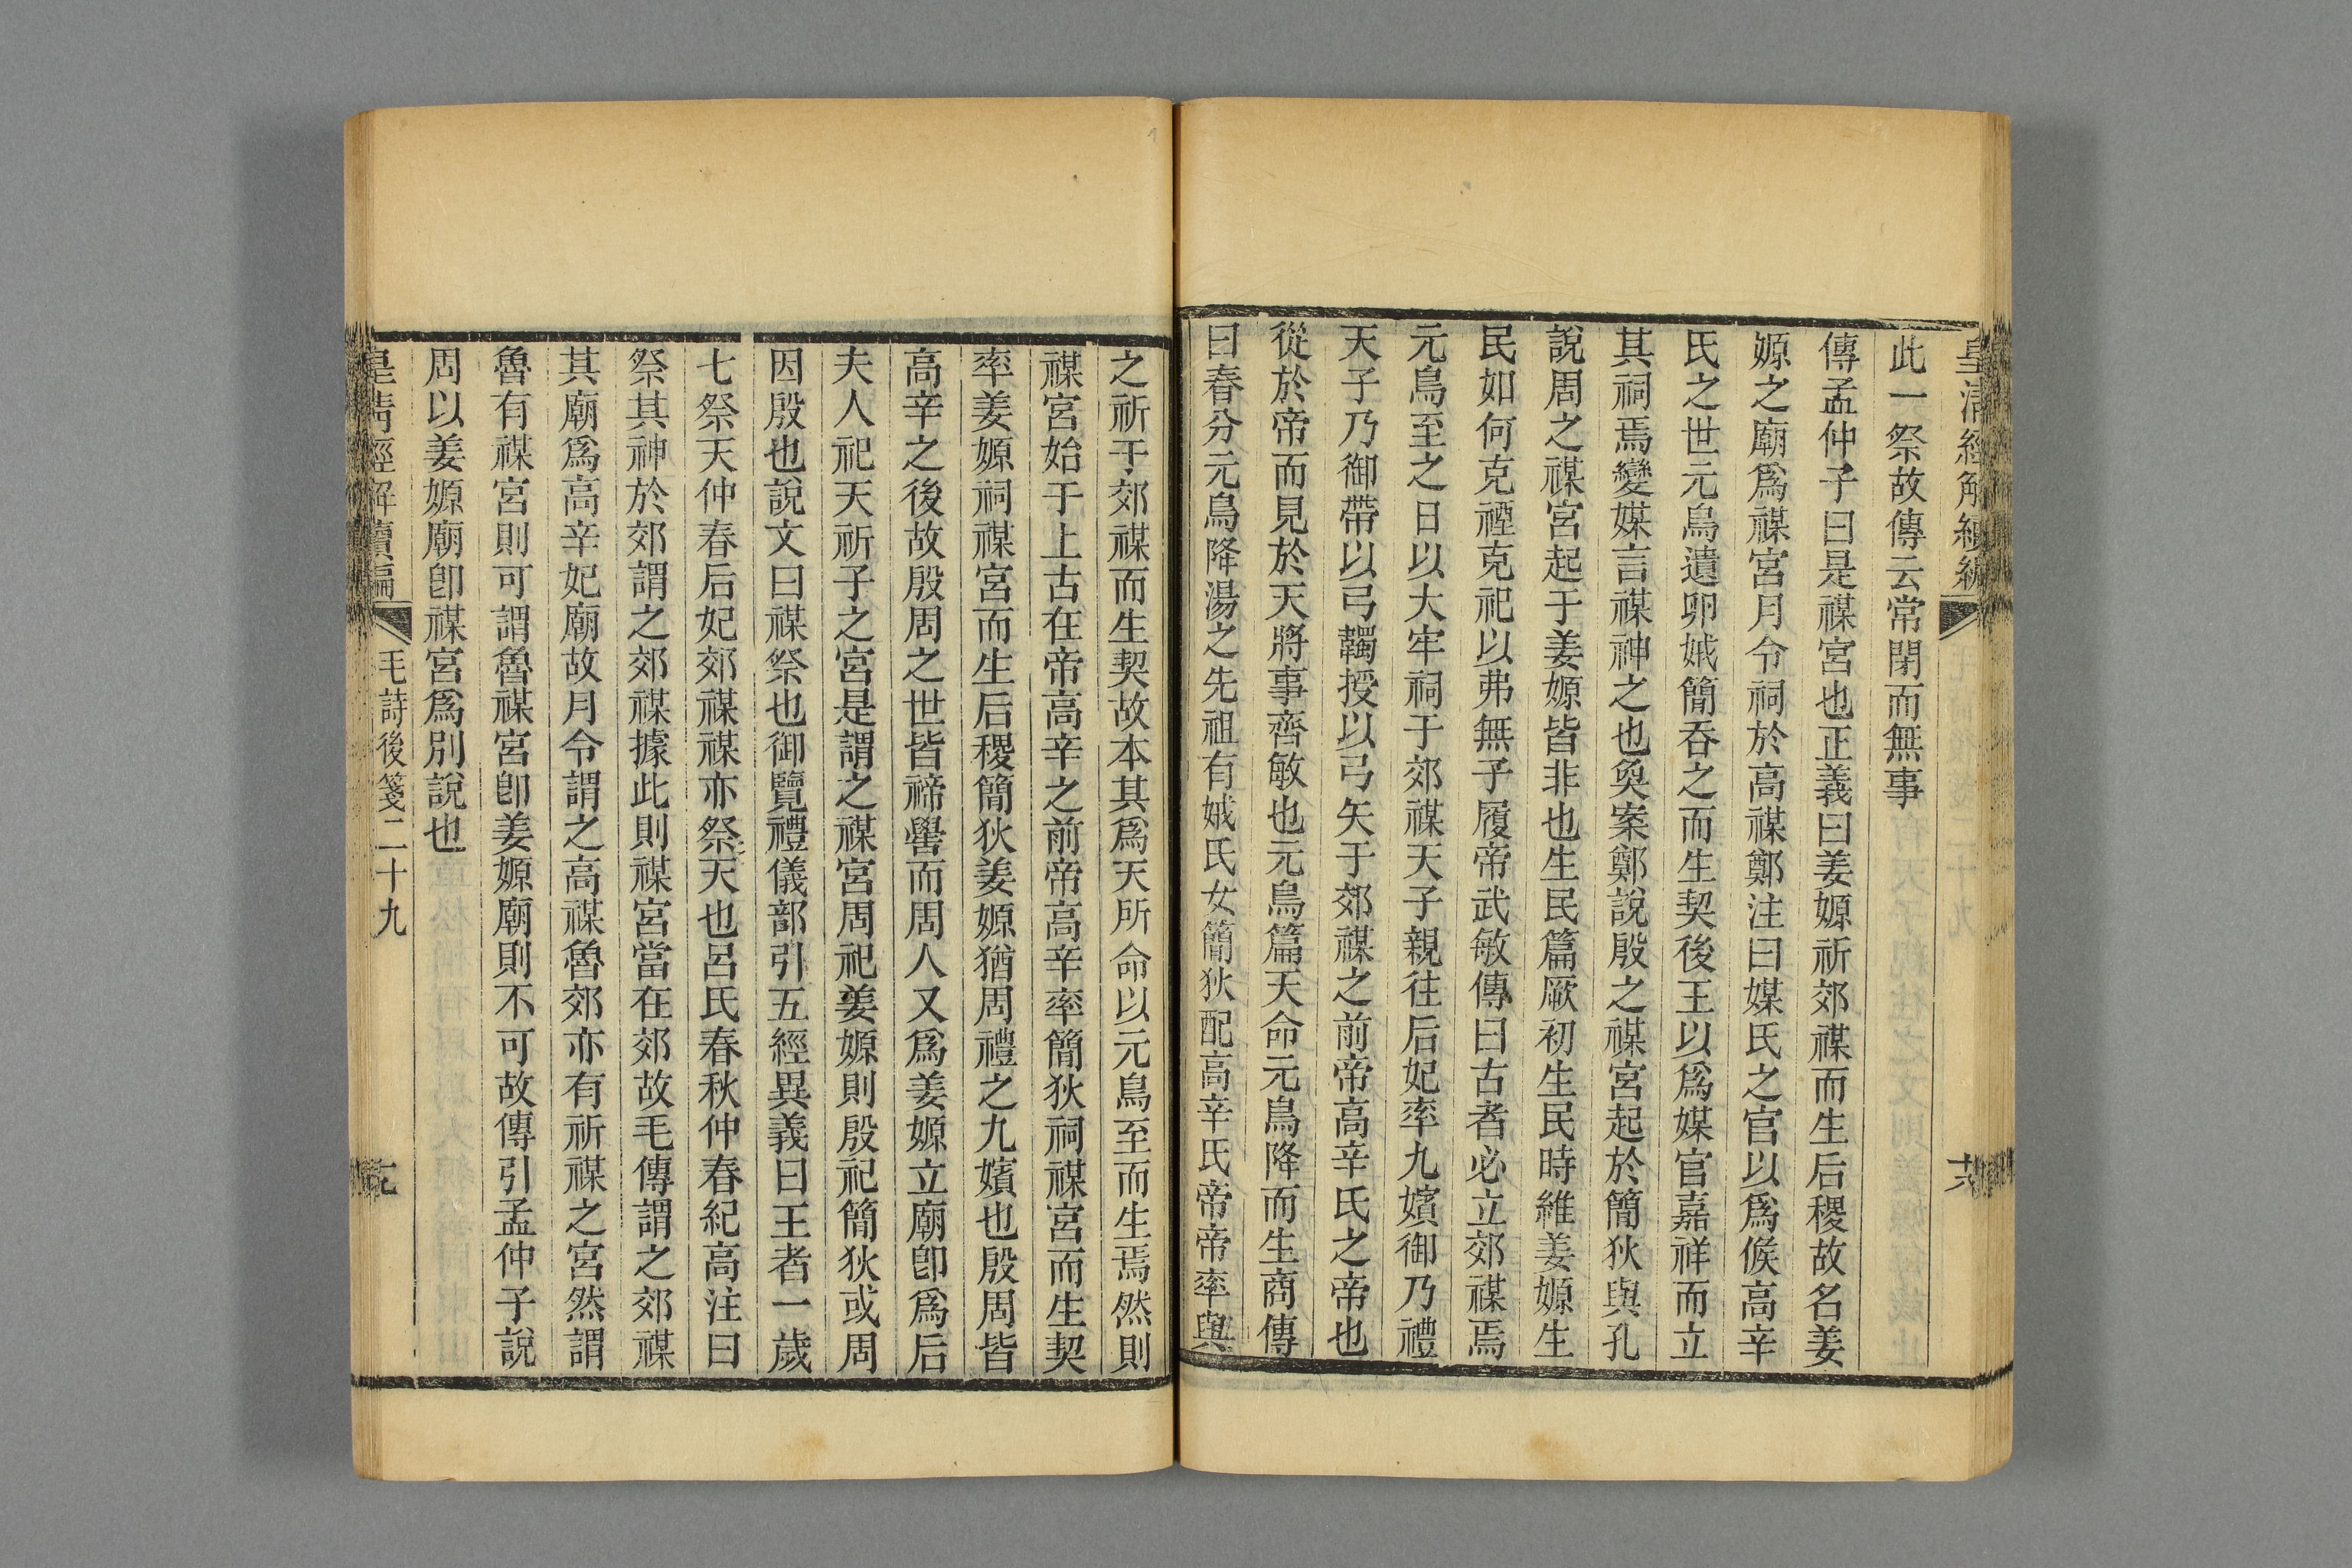 皇清經解續編
此一祭故傳云常閉而無事
傳孟仲子曰是禖宮也正義曰姜嫄祈郊禖而生后稷故名姜
嫄之廟爲禖宮月令祠於高禖鄭注曰媒氏之官以爲候高辛
氏之世元鳥遺卵娀簡吞之而生契後王以爲媒官嘉祥而立
其祠焉變媒言禖神之也奐案鄭說殷之禖宮起於簡狄與孔
說周之禖宮起于姜嫄皆非也生民篇厥初生民時維姜嫄生
民如何克禋克祀以弗無子履帝武敏傳曰古者必立郊禖焉
元鳥至之日以大牢祠于郊禖天子親往后妃率九嬪御乃禮
天子乃御帶以弓韣授以弓矢于郊禖之前帝高辛氏之帝也
從於帝而見於天將事齊敏也元鳥篇天命元鳥降而生商傳
曰春分元鳥降湯之先祖有娀氏女簡狄配高辛氏帝帝率與
之祈于郊禖而生契故本其爲天所命以元鳥至而生焉然則
禖宮始于上古在帝高辛之前帝高辛率簡狄祠禖宮而生契
率姜嫄祠禖宮而生后稷簡狄姜嫄猶周禮之九嬪也殷周皆
高辛之後故殷周之世皆禘嚳而周人又爲姜嫄立廟卽爲后
夫人祀天祈子之宮是謂之禖宮周祀姜嫄則殷祀簡狄或周
因殷也說文曰禖祭也御覽禮儀部引五經異義曰王者一歲
七祭天仲春后妃郊禖禖亦祭天也呂氏春秋仲春紀高注曰
祭其神於郊謂之郊禖據此則禖宮當在郊故毛傳謂之郊禖
其廟爲高辛妃廟故月令謂之高禖魯郊亦有祈禖之宮然謂
魯有禖宮則可謂魯禖宮卽姜嫄廟則不可故傳引孟仲子說
周以姜嫄廟卽禖宮爲別說也
皇清經解續編
毛詩後箋二十九